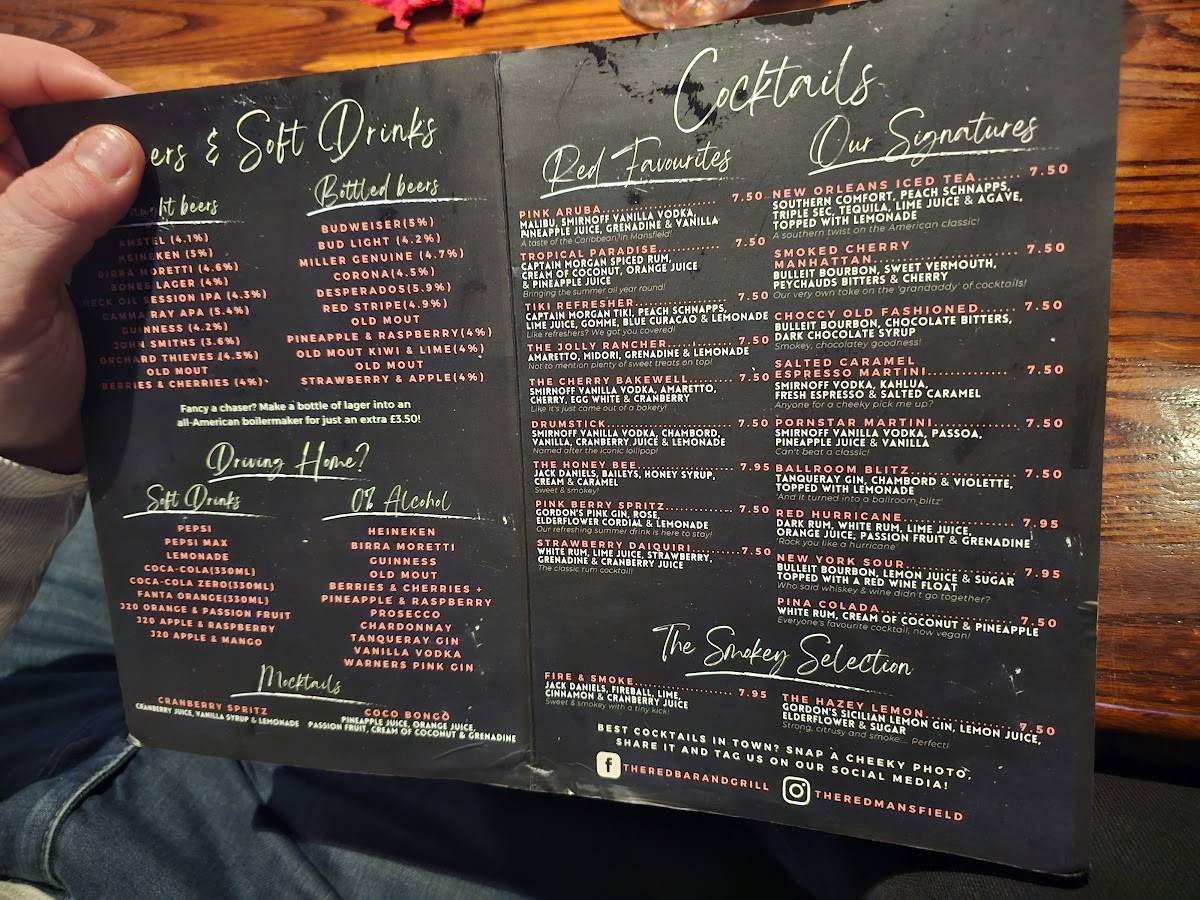 & Soft Drinks
beers
AMSTEL (4.1%)
HEINEKEN (5%)
BIRRA MORETTI (4.6%)
BONES LAGER (4%)
NECK OIL SESSION IPA (4.3%)
GAMMA RAY APA (5.4%)
GUINNESS (4.2%)
JOHN SMITHS (3.6%)
ORCHARD THIEVES (4.5%)
OLD MOUT
BERRIES & CHERRIES (4%)
Bottled beers
BUDWEISER(5%)
BUD LIGHT (4.2%)
MILLER GENUINE (4.7%)
CORONA(4.5%)
DESPERADOS(5.9%)
RED STRIPE(4.9%)
OLD MOUT
PINEAPPLE & RASPBERRY(4%)
OLD MOUT KIWI & LIME(4%)
OLD MOUT
STRAWBERRY & APPLE(4%)
Fancy a chaser? Make a bottle of lager into an
all-American boilermaker for just an extra £3.50!
Driving Home?
Soft Drinks
PEPSI
PEPSI MAX
LEMONADE
COCA-COLA(330ML)
COCA-COLA ZERO(330ML)
FANTA ORANGE(330ML)
J20 ORANGE & PASSION FRUIT
J20 APPLE & RASPBERRY
J20 APPLE & MANGO
0% Alcohol
HEINEKEN
BIRRA MORETTI
GUINNESS
OLD MOUT
BERRIES & CHERRIES +
PINEAPPLE & RASPBERRY
PROSECCO
CHARDONNAY
TANQUERAY GIN
VANILLA VODKA
WARNERS PINK GIN
Mocktails
CRANBERRY SPRITZ
CRANBERRY JUICE, VANILLA SYRUP & LEMONADE
COCO BONGO
PINEAPPLE JUICE, ORANGE JUICE,
PASSION FRUIT, CREAM OF COCONUT & GRENADINE
Cocktails
Red Favourites
PINK ARUBA.......................... 7.50
MALIBU, SMIRNOFF VANILLA VODKA,
PINEAPPLE JUICE, GRENADINE & VANILLA
A taste of the Caribbean, in Mansfield!
TROPICAL PARADISE.................. 7.50
CAPTAIN MORGAN SPICED RUM,
CREAM OF COCONUT, ORANGE JUICE
& PINEAPPLE JUICE
Bringing the summer all year round!
TIKI REFRESHER..................... 7.50
CAPTAIN MORGAN TIKI, PEACH SCHNAPPS,
LIME JUICE, GOMME, BLUE CURACAO & LEMONADE
Like refreshers? We got you covered!
THE JOLLY RANCHER................ 7.50
AMARETTO, MIDORI, GRENADINE & LEMONADE
Not to mention plenty of sweet treats on top!
THE CHERRY BAKEWELL............ 7.50
SMIRNOFF VANILLA VODKA, AMARETTO,
CHERRY, EGG WHITE & CRANBERRY
Like it's just came out of a bakery!
DRUMSTICK......................... 7.50
SMIRNOFF VANILLA VODKA, CHAMBORD,
VANILLA, CRANBERRY JUICE & LEMONADE
Named after the iconic lollipop!
THE HONEY BEE.................... 7.95
JACK DANIELS, BAILEYS, HONEY SYRUP,
CREAM & CARAMEL
Sweet & smokey!
PINK BERRY SPRITZ................ 7.50
GORDON'S PINK GIN, ROSE,
ELDERFLOWER CORDIAL & LEMONADE
Our refreshing summer drink is here to stay!
STRAWBERRY DAIQUIRI.........7.50
WHITE RUM, LIME JUICE, STRAWBERRY,
GRENADINE & CRANBERRY JUICE
The classic rum cocktail!
Our Signatures
NEW ORLEANS ICED TEA...... 7.50
SOUTHERN COMFORT, PEACH SCHNAPPS,
TRIPLE SEC, TEQUILA, LIME JUICE & AGAVE,
TOPPED WITH LEMONADE
A southern twist on the American classic!
SMOKED CHERRY
MANHATTAN....................... 7.50
BULLEIT BOURBON, SWEET VERMOUTH,
PEYCHAUDS BITTERS & CHERRY
Our very own take on the 'grandaddy' of cocktails!
CHOCCY OLD FASHIONED...... 7.50
BULLEIT BOURBON, CHOCOLATE BITTERS,
DARK CHOCOLATE SYRUP
Smokey, chocolatey goodness!
SALTED CARAMEL
ESPRESSO MARTINI.............. 7.50
SMIRNOFF VODKA, KAHLUA,
FRESH ESPRESSO & SALTED CARAMEL
Anyone for a cheeky pick me up?
PORNSTAR MARTINI............. 7.50
SMIRNOFF VANILLA VODKA, PASSOA,
PINEAPPLE JUICE & VANILLA
Can't beat a classic!
BALLROOM BLITZ................. 7.50
TANQUERAY GIN, CHAMBORD & VIOLETTE,
TOPPED WITH LEMONADE
'And it turned into a ballroom blitz'
RED HURRICANE.................. 7.95
DARK RUM, WHITE RUM, LIME JUICE,
ORANGE JUICE, PASSION FRUIT & GRENADINE
'Rock you like a hurricane'
NEW YORK SOUR.................. 7.95
BULLEIT BOURBON, LEMON JUICE & SUGAR
TOPPED WITH A RED WINE FLOAT
Who said whiskey & wine didn't go together?
PINA COLADA..................... 7.50
WHITE RUM, CREAM OF COCONUT & PINEAPPLE
Everyone's favourite cocktail, now vegan!
The Smokey Selection
FIRE & SMOKE..................... 7.95
JACK DANIELS, FIREBALL, LIME,
CINNAMON & CRANBERRY JUICE
Sweet & smokey with a tiny kick!
THE HAZEY LEMON.............. 7.50
GORDON'S SICILIAN LEMON GIN, LEMON JUICE,
ELDERFLOWER & SUGAR
Strong, citrusy and smoke.... Perfect!
BEST COCKTAILS IN TOWN? SNAP A CHEEKY PHOTO,
SHARE IT AND TAG US ON OUR SOCIAL MEDIA!
THEREDBARANDGRILL
THEREDMANSFIELD